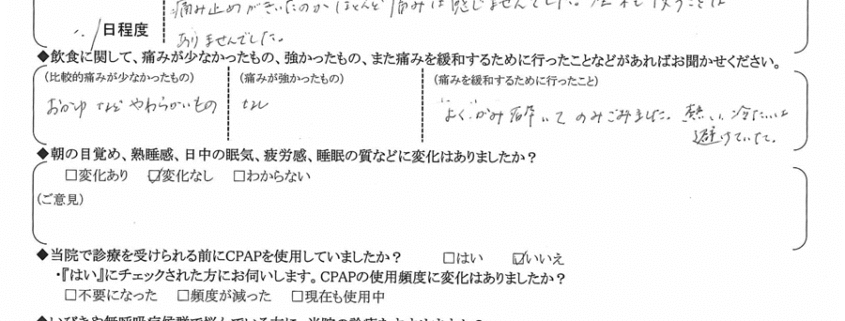 痛み止めがきいたのかほとんど痛みは感じませんでした。
日程度
ありませんでした。
◆飲食に関して、痛みが少なかったもの、強かったもの、また痛みを緩和するために行ったことなどがあればお聞かせください。
(比較的痛みが少なかったもの) (痛みが強かったもの) (痛みを緩和するために行ったこと)
おかゆ などやわらかいもの なし よくかみ砕いてのみこみました。熱い、冷たいは
避けていた。
◆朝の目覚め、熟睡感、日中の眠気、疲労感、睡眠の質などに変化はありましたか?
□変化あり ☑変化なし □わからない
(ご意見)
◆当院で診療を受けられる前にCPAPを使用していましたか? □はい ☑いいえ
・『はい』にチェックされた方にお伺いします。CPAPの使用頻度に変化はありましたか?
□不要になった □頻度が減った □現在も使用中